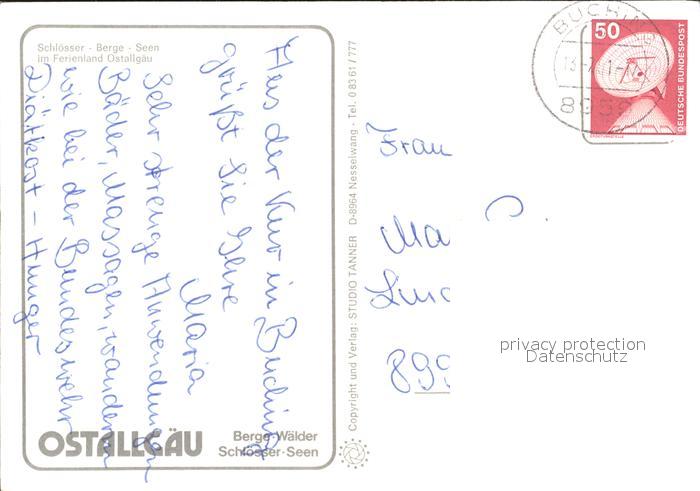 Schlösser - Berge - Seen
im Ferienland Ostallgäu
Aus der Kur in Buching
grüßt Sie Ihre
Maria
Sehr strenge Anwendungen
Bäder, Massagen, wandern
wie bei der Bundeswehr
Diätkost - Hunger
OSTALLGÄU
Berge·Wälder
Schlösser·Seen
Copyright und Verlag: STUDIO TANNER D-8964 Nesselwang - Tel. 0 83 61 / 777
BUCHING
8959
50
DEUTSCHE BUNDESPOST
ERDEFUNKSTELLE
Frau
Ma
899
privacy protection
Datenschutz